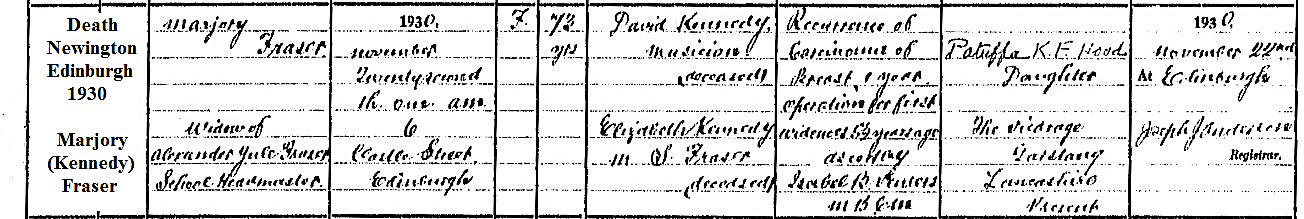 Death
Newington
Edinburgh
1930
Marjory
(Kennedy)
Fraser
Marjory
Fraser
Widow of
Alexander Yule Fraser
School Headmaster.
1930.
November
Twentysecond
1h. 0m. am
6
Castle Street
Edinburgh
F.
73
yrs
David Kennedy,
Musician
(deceased)
Elizabeth Kennedy
m S. Fraser
(deceased)
Recurrence of
Carcinoma of
Breast, 1 year
operation for first
evidence 5½ years ago
as cert by
Isabel B. Venters
M B Ch
Patuffa K. F. Hood
Daughter
The Vicarage
Garstang
Lancashire
Present
1930.
November 22nd
At Edinburgh
Joseph J Anderson
Registrar.